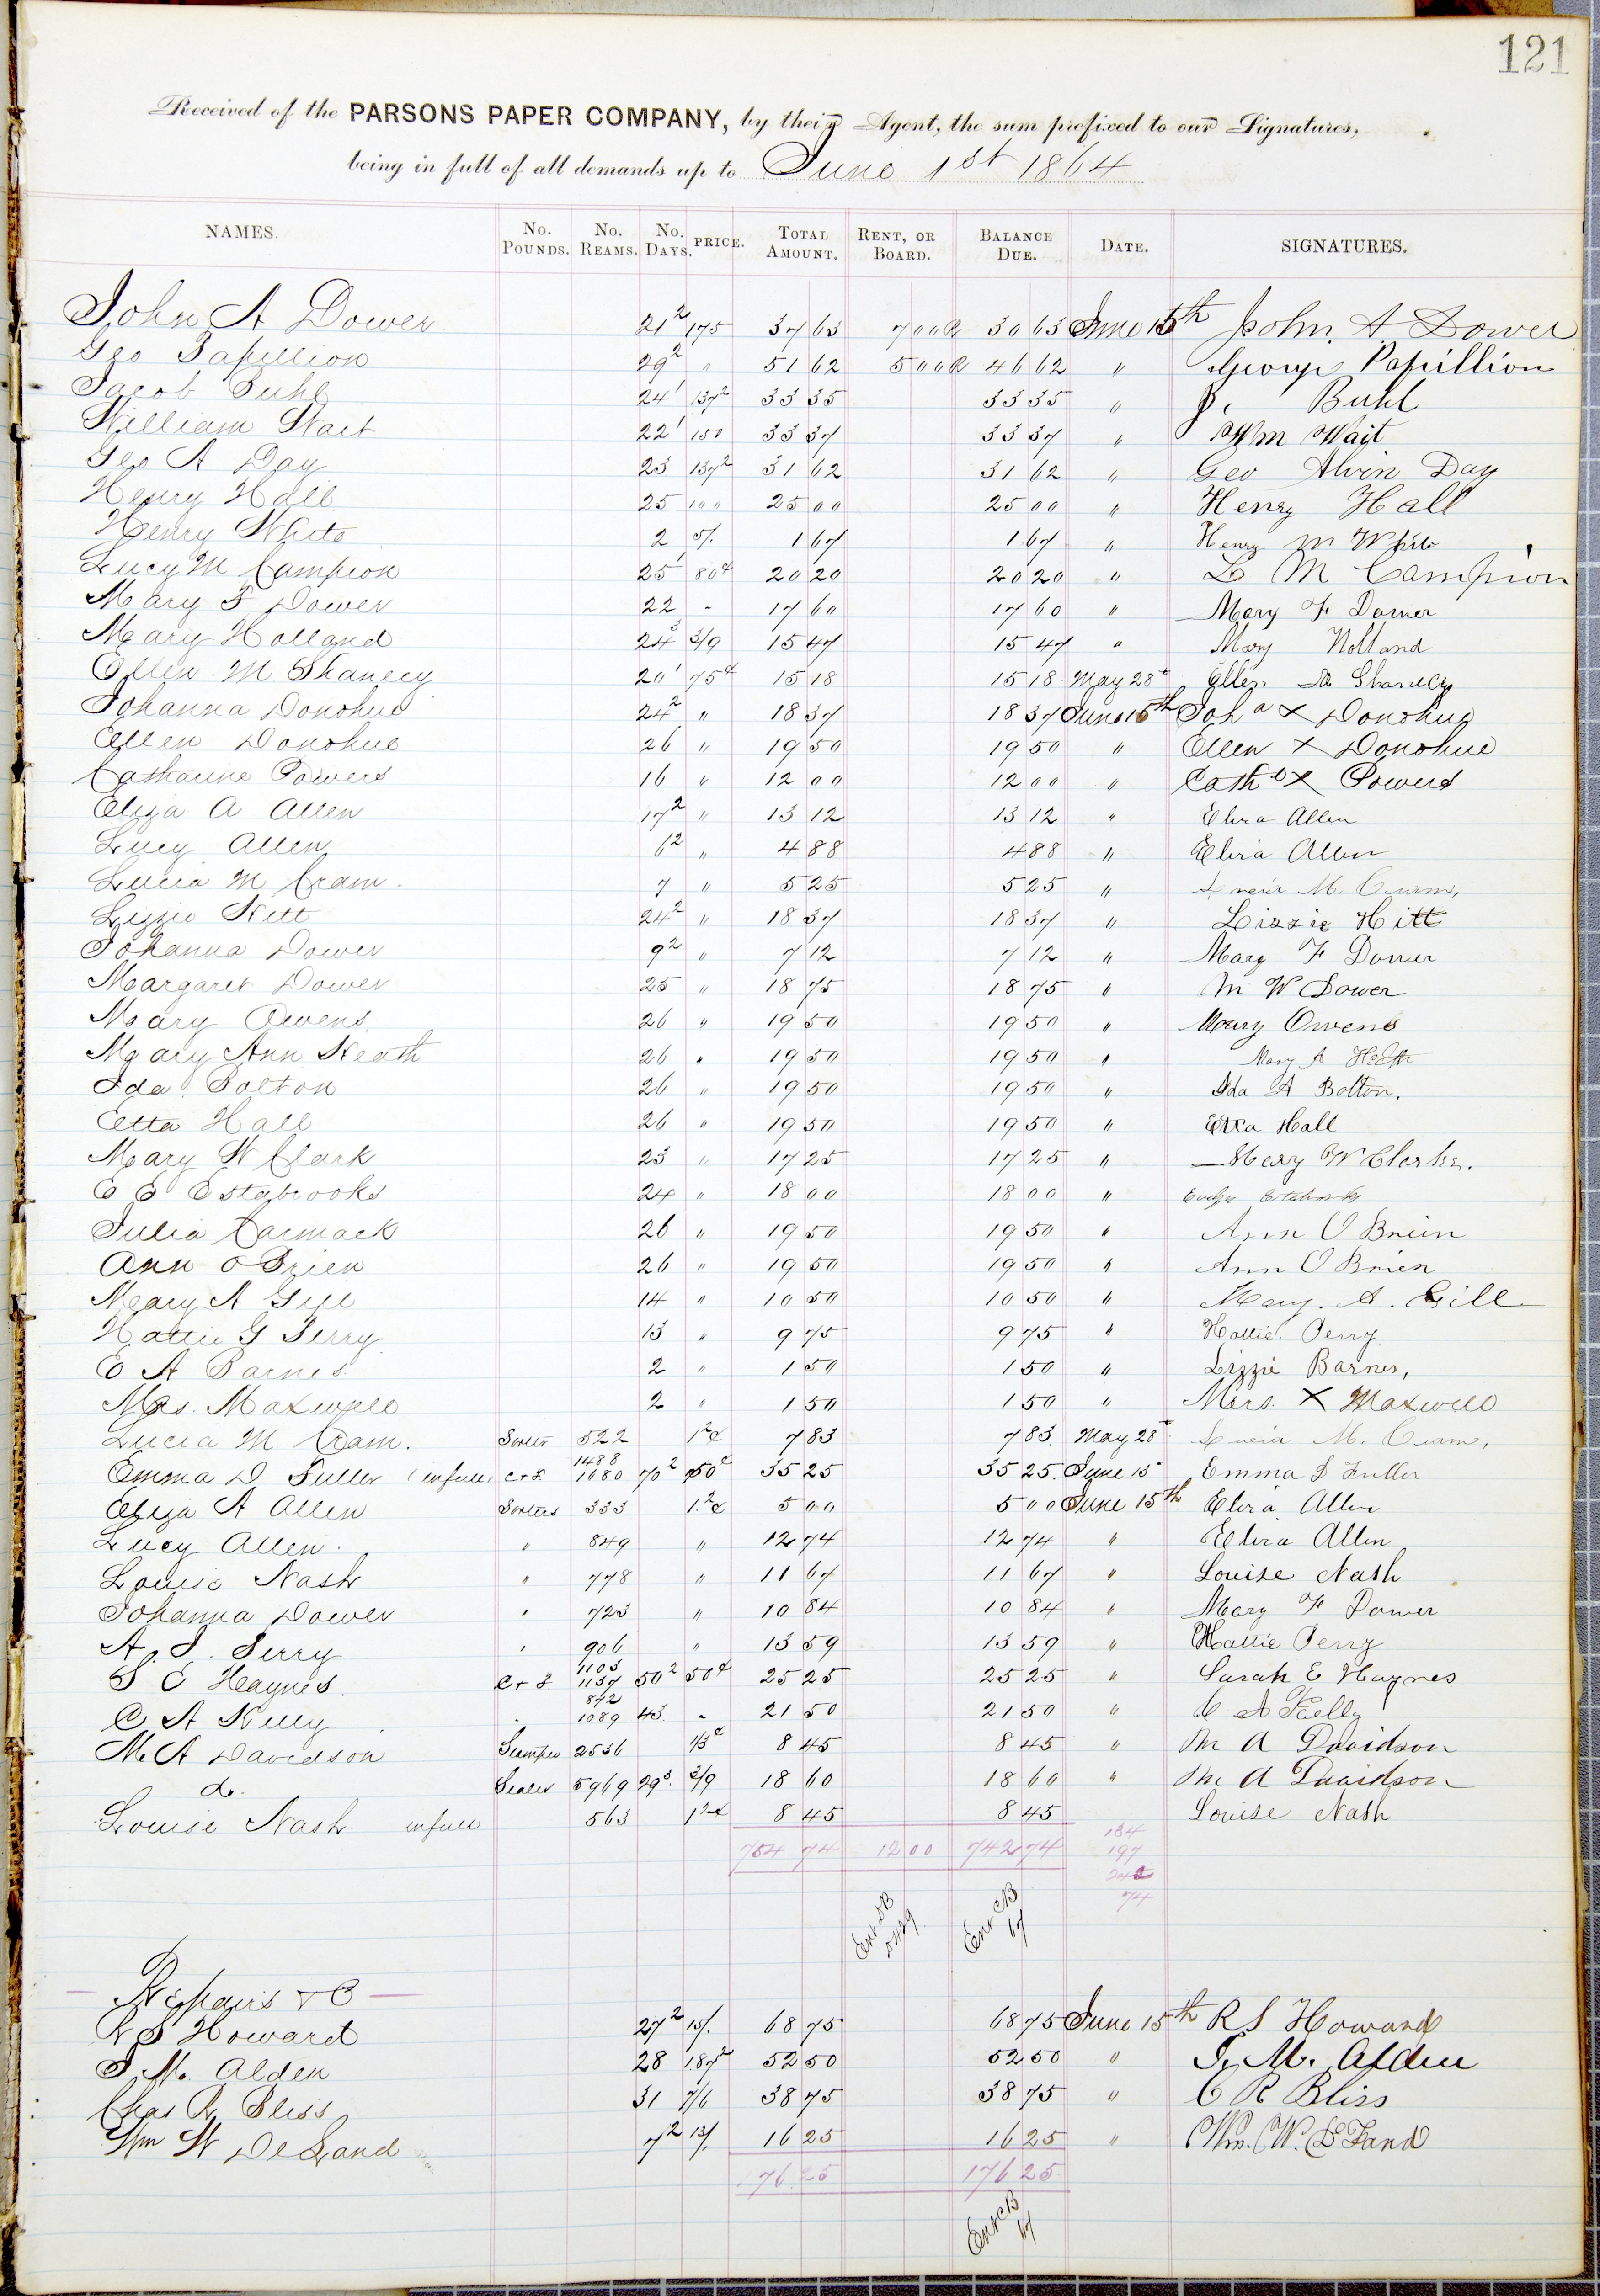 121
Received of the PARSONS PAPER COMPANY, by their Agent, the sum prefixed to our Signatures,
being in full of all demands up to June 1st 1864
NAMES. No. Pounds. No. Reams. No. Days. PRICE. Total Amount. Rent, or Board. Balance Due. Date. SIGNATURES.
John A Dower 21 2 175 37 63 7 00 R 30 63 June 15th John. A Dower
Geo Papillion 29 2 " 51 62 5 00 R 46 62 " George Papillion
Jacob Buhl 24 1 137 2 33 35 33 35 " J. Buhl
William Wait 22 1 150 33 37 33 37 " Wm Wait
Geo A Day 23 137 2 31 62 31 62 " Geo Alvin Day
Henry Hall 25 100 25 00 25 00 " Henry Hall
Henry White 2 5/. 1 67 1 67 " Henry M White
Lucy M Campion 25 1 80¢ 20 20 20 20 " L M Campion
Mary F Dower 22 " 17 60 17 60 " Mary F Dower
Mary Holland 24 3 3/9 15 47 15 47 " Mary Holland
Ellen M Shanecy 20 1 75¢ 15 18 15 18 May 28 Ellen M Shanecy
Johanna Donohue 24 2 " 18 37 18 37 June 15th Joh a X Donohue
Ellen Donohue 26 " 19 50 19 50 " Ellen X Donohue
Catharine Powers 16 " 12 00 12 00 " Cath e X Powers
Eliza A Allen 17 2 " 13 12 13 12 " Eliza Allen
Lucy Allen 6 2 " 4 88 4 88 " Eliza Allen
Lucia M Cram. 7 " 5 25 5 25 " Lucia M. Cram,
Lizzie Hitt 24 2 " 18 37 18 37 " Lizzie Hitt
Johanna Dower 9 2 " 7 12 7 12 " Mary F Dower
Margaret Dower 25 " 18 75 18 75 " M W Dower
Mary Owens 26 " 19 50 19 50 " Mary Owens
Mary Ann Heath 26 " 19 50 19 50 " Mary A Heath
Ida Bolton 26 " 19 50 19 50 " Ida A Bolton.
Etta Hall 26 " 19 50 19 50 " Etta Hall
Mary W Clark 23 " 17 25 17 25 " Mary W Clarke.
E E Estabrooks 24 " 18 00 18 00 "
Julia Carmack 26 " 19 50 19 50 " Ann O Brien
Ann O Brien 26 " 19 50 19 50 " Ann O Brien
Mary A Gill 14 " 10 50 10 50 " Mary. A. Gill
Hattie G Perry 13 " 9 75 9 75 " Hattie. Perry
E A Barnes 2 " 1 50 1 50 " Lizzie Barnes,
Mrs. Maxwell 2 " 1 50 1 50 " Mrs. X Maxwell
Lucia M Cram. Sorter 522 1 2 ¢ 7 83 7 83 May 28 Lucia M. Cram,
Emma D Fuller (in full) C & F. 1488 1680 70 2 50¢ 35 25 35 25 June 15 Emma D Fuller
Eliza A Allen Sorters 333 1. 2 ¢ 5 00 5 00 June 15th Eliza Allen
Lucy Allen. " 849 " 12 74 12 74 " Eliza Allen
Louise Nash " 778 " 11 67 11 67 " Louise Nash
Johanna Dower " 723 " 10 84 10 84 " Mary F Dower
H. G. Perry " 906 " 13 59 13 59 " Hattie Perry
S E Haynes. C & F. 1103 1137 50 2 50¢ 25 25 25 25 " Sarah E Haynes
C A Kelly " 842 1089 43. " 21 50 21 50 " C A Kelly
M. A Davidson Stamper 2536 1/3¢ 8 45 8 45 " M A Davidson
do. Sealer 5969 29 3 3/9 18 60 18 60 " M A Davidson
Louise Nash in full 563 1 2 ¢ 8 45 8 45 Louise Nash
754 74 12 00 742 74 134
197
74
Ent CB 67
Repairs & C
R S Howard 27 2 15/. 68 75 68 75 June 15th R S Howard
S. M. Alden 28 187 2 52 50 52 50 " S. M. Alden
Chas R Bliss 31 7/6 38 75 38 75 " C R Bliss
Wm W DeLand 7 2 13/. 16 25 16 25 " Wm. W. DeLand
176 25 176 25
Ent CB 67